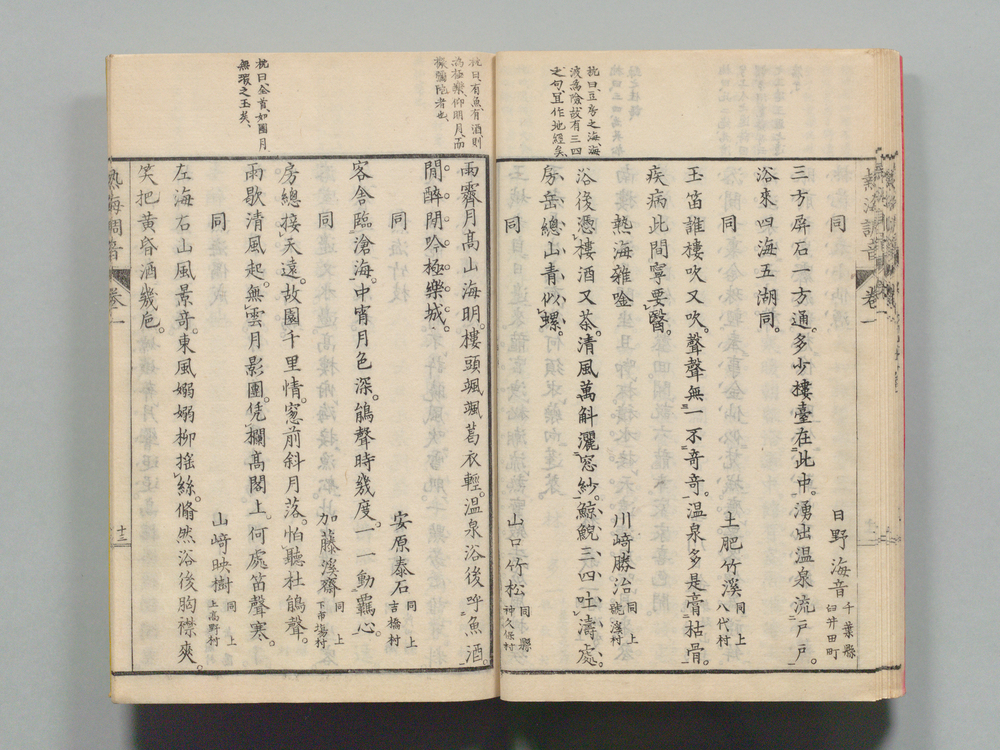 同
日野海音 千葉縣 臼井田町
三方屏石一方通。多少樓臺在此中。湧出温泉流戸戸。
浴來四海五湖同。
同
土肥竹溪 同上 八代村
玉笛誰樓吹又吹。聲聲無一不奇奇。温泉多是膏枯骨。
疾病此間寧要醫。
熱海雜唫
川﨑勝治 同上
浴後憑樓酒又茶。清風萬斛灑窓紗。鯨鯢三四吐濤處。
房岳總山青似螺。
同
山口竹松 同縣 神久保村
雨霽月髙山海明。樓頭颯颯葛衣輕。温泉浴後呼魚酒。
閒醉閒吟極樂城。
同
安原泰石 同上 吉橋村
客舎臨滄海。中宵月色深。鵑聲時幾度。一一動羈心。
同
加藤溪齋 同上 下市場村
房總接天遠。故園千里情。窓前斜月落。怕聽杜鵑聲。
雨歇清風起。無雲月影團。凭欄髙閣上。何處笛聲寒。
同
山﨑映樹 同上 上高野村
左海右山風景奇。東風嫋嫋柳搖絲。翛然浴後胸襟爽。
笑把黄昏酒幾巵。
枕曰豆房之海海
波爲險故有三四
之句且作地經矣
枕曰有魚有酒則
爲極樂仰明月而
枕曰筌首如團月
無瑕之玉矣
熱海調音 卷一
熱海調音 卷一 十三